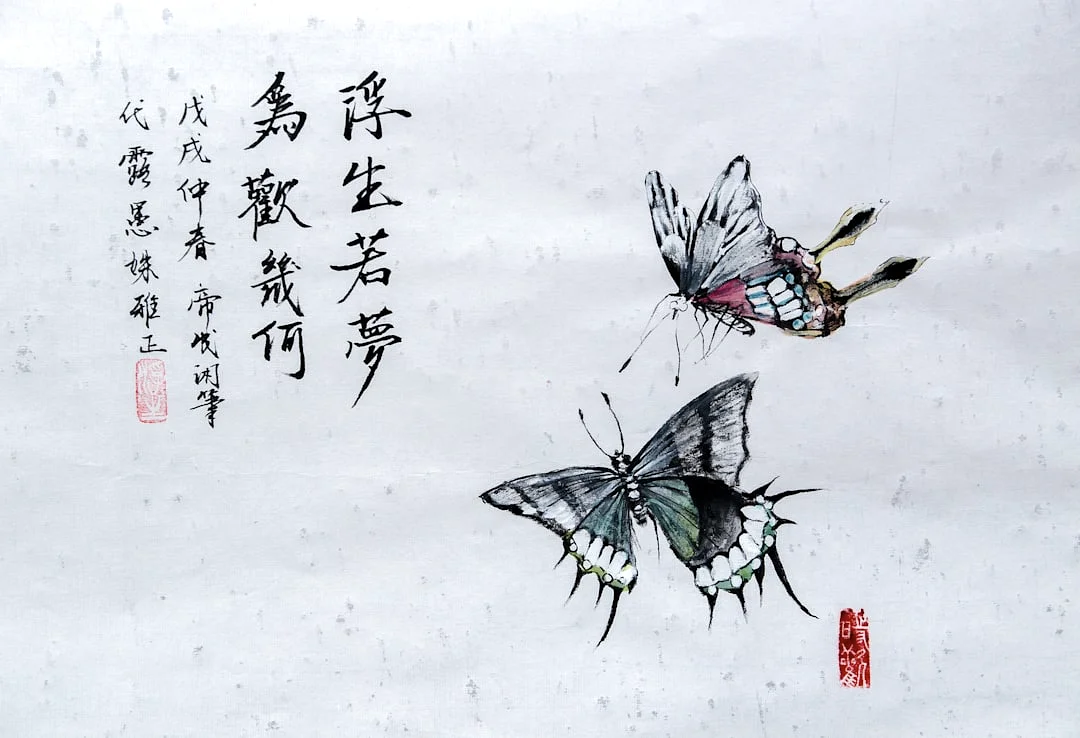 浮生若夢
為歡幾何
戊戌仲春 帝戊閑筆
代露愚姝雅正